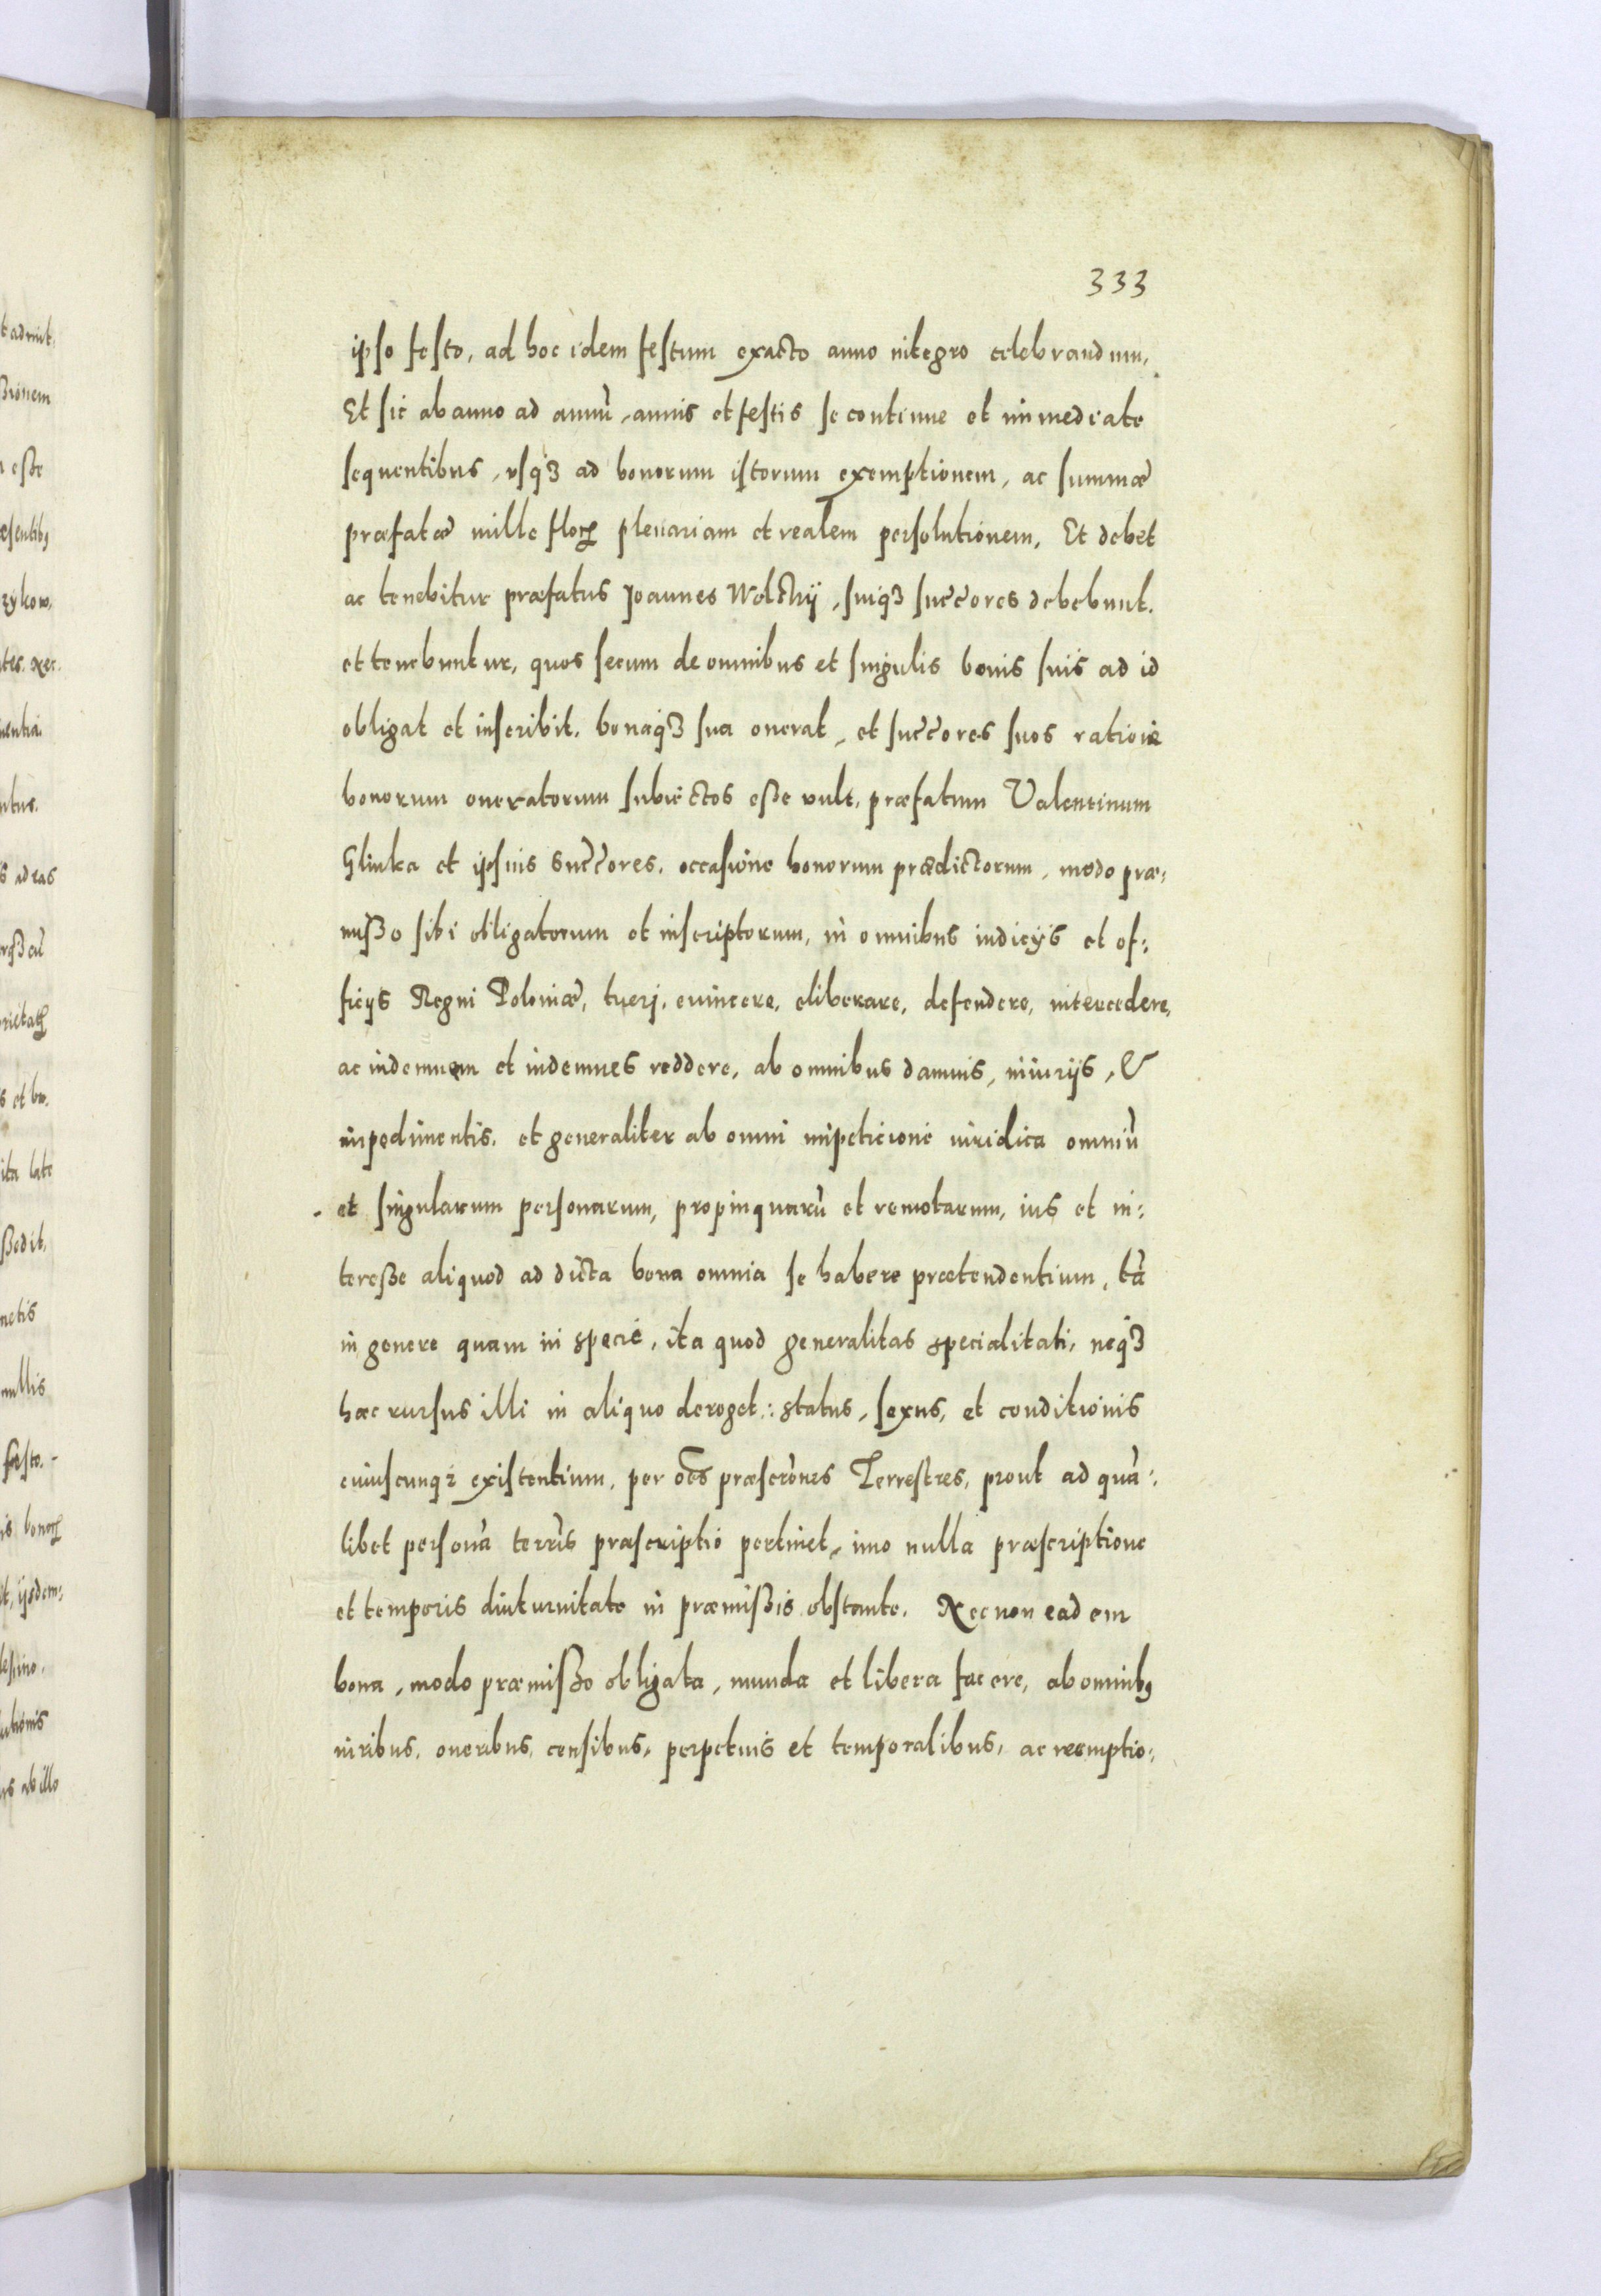 333
ipso festo, ad hoc idem festum exacto anno integro celebrandum.
Et sic ab anno ad annũ, annis et festis se continue et immediate
sequentibus, vsq3 ad bonorum istorum exemptionem, ac summæ
præfatæ mille floꝝ plenariam et realem persolutionem. Et debet
ac tenebitur præfatus Joannes Wolckij, suiq3 succ̃ores debebunt.
et tenebuntur, quos secum de omnibus et singulis bonis suis ad id
obligat et inscribit. bonaq3 sua onerat, et succ̃ores suos ratione
bonorum oneratorum subiectos eße vult, præfatum Valentinum
Glinka et ipsius succ̃ores. occasione bonorum prædictorum, modo præ:
mißo sibi obligatorum et inscriptorum, in omnibus iudicijs et of:
ficijs Regni Poloniæ, tueri, euincere, eliberare, defendere, intercedere,
ac indemnem et indemnes reddere, ab omnibus damnis, iniurijs, &
impedimentis. et generaliter ab omni impeticione iuridica omniũ
et singularum personarum, propinquarũ et remotarum, ius et in:
tereße aliquod ad dicta bona omnia se habere prætendentium, tã
in genere quam in specie, ita quod generalitas specialitati, neq3
hæc rursus illi in aliquo deroget: status, sexus, et conditionis
cuiuscunq3 existentium, per oẽs præscr̃ones Terrestres, prout ad quã:
libet personã terr̃is præscriptio pertinet, imo nulla præscriptione
et temporis diuturnitate in præmißis obstante. Nec non eadem
bona, modo præmißo obligata, munda et libera facere, ab omnibꝫ
iuribus, oneribus, censibus, perpetuis et temporalibus, ac reemptio: